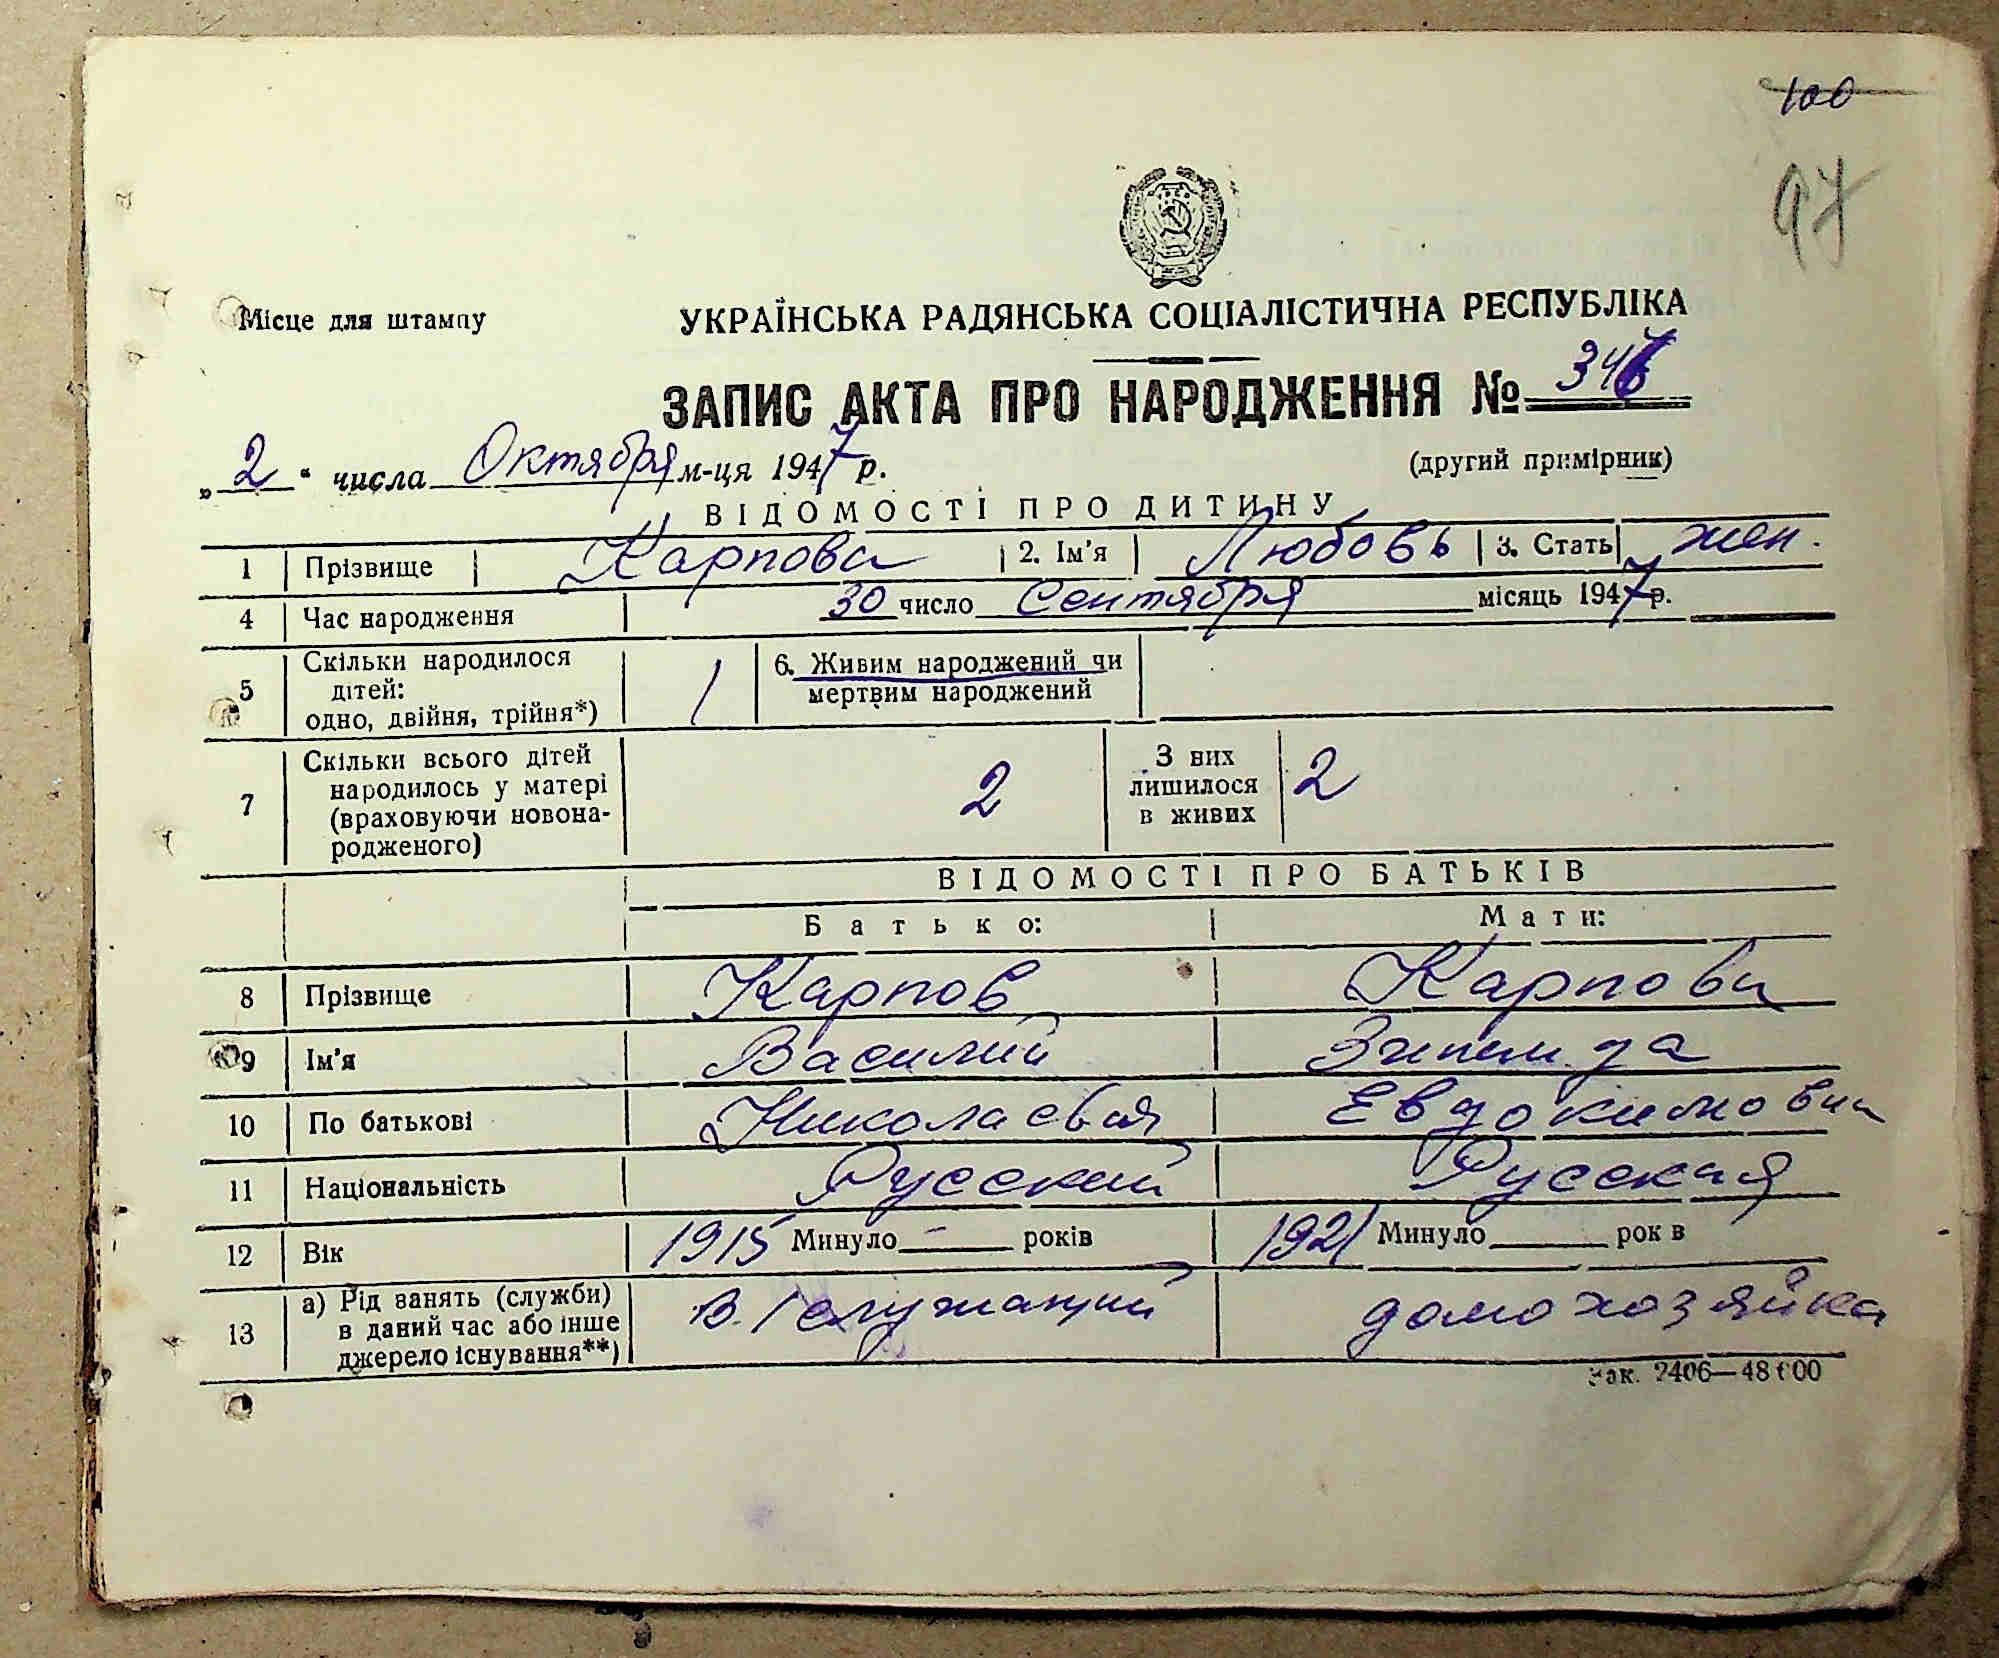 100
97
Місце для штампу
УКРАЇНСЬКА РАДЯНСЬКА СОЦІАЛІСТИЧНА РЕСПУБЛІКА
ЗАПИС АКТА ПРО НАРОДЖЕННЯ №
„2" числа Октября м-ця 1947 р.
(другий примірник)
ВІДОМОСТІ ПРО ДИТИНУ
1 Прізвище Карпова 2. Ім'я Любовь 3. Стать жен.
4 Час народження 30 число Сентября місяць 1947 р.
5 Скільки народилося дітей: одно, двійня, трійня*) 1 6. Живим народжений чи мертвим народжений
7 Скільки всього дітей народилось у матері (враховуючи новонародженого) 2 З них лишилося в живих 2
ВІДОМОСТІ ПРО БАТЬКІВ
Батько: Мати:
8 Прізвище Карпов Карпова
9 Ім'я Василий Зинаида
10 По батькові Николаевич Евдокимовна
11 Національність Русский Русская
12 Вік 1915 Минуло — років 1921 Минуло рок в
13 а) Рід занять (служби) в даний час або інше джерело існування**) В. служащий домохозяйка
Зак. 2406—48000